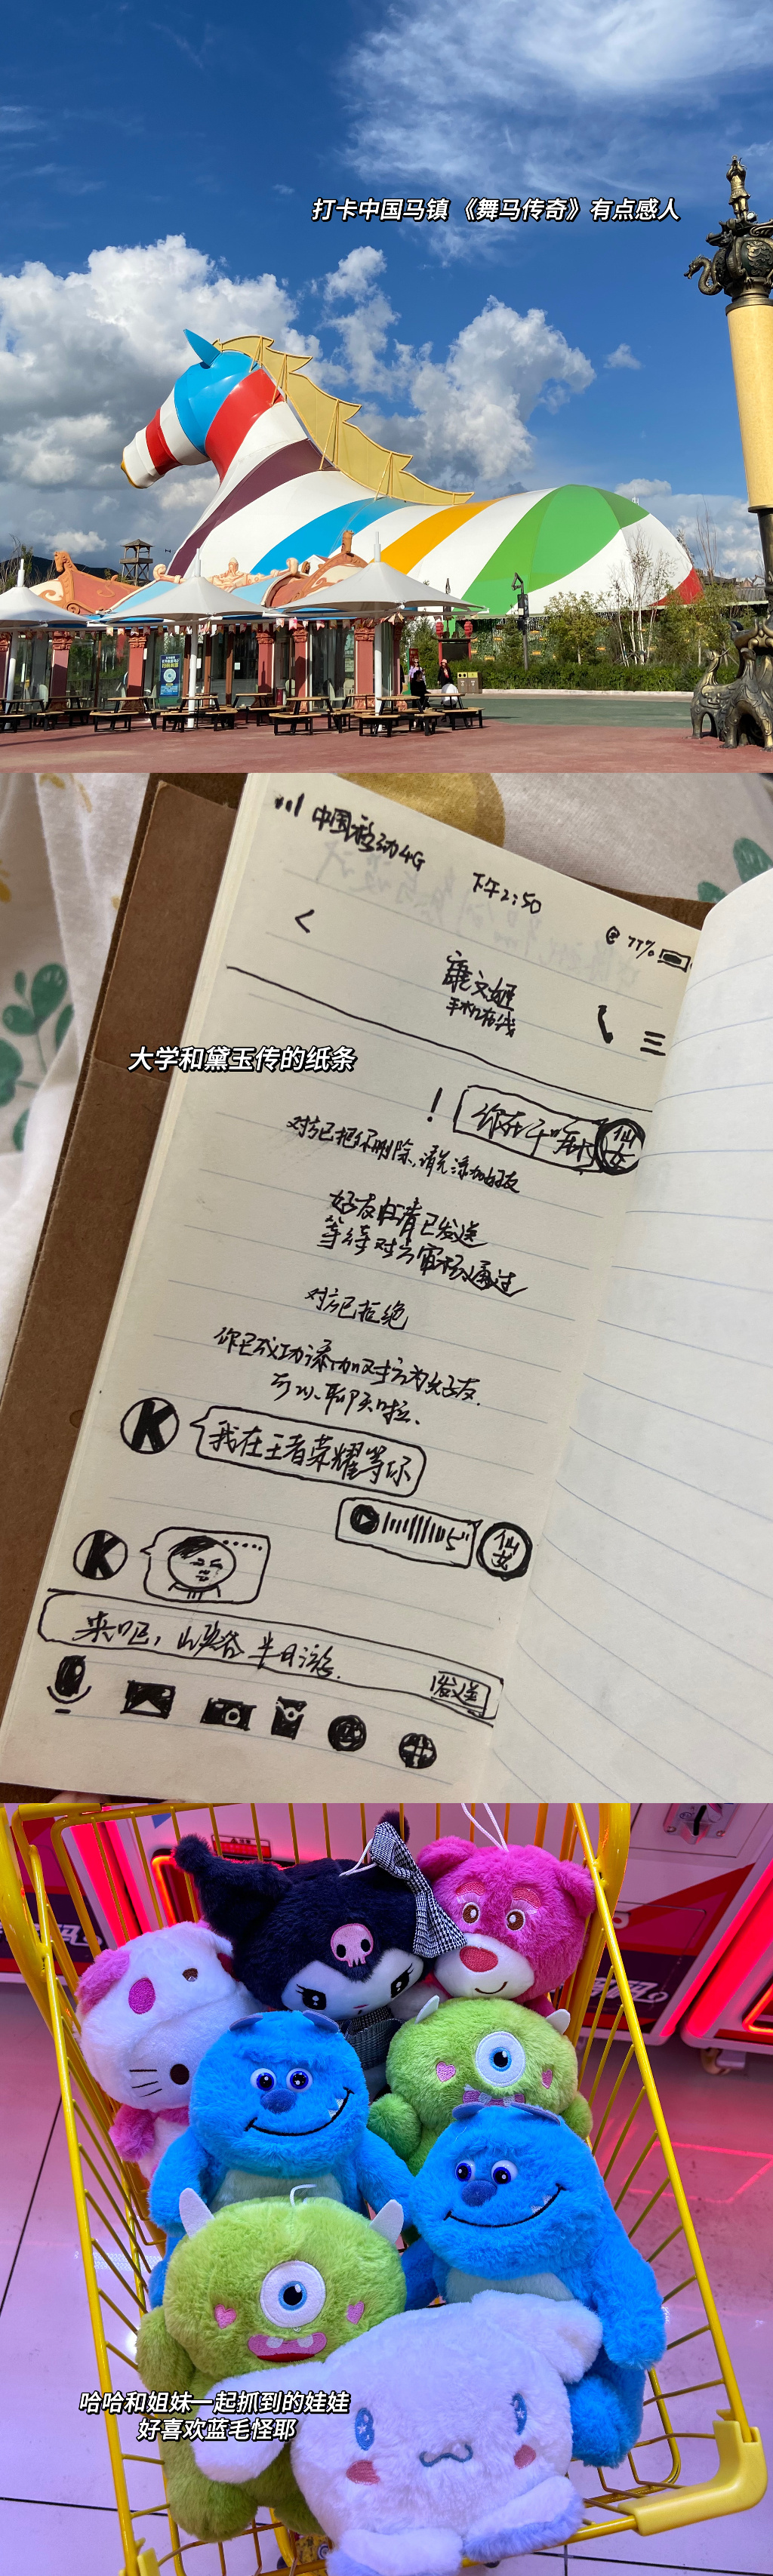 打卡中国马镇《舞马传奇》有点感人
中国移动4G 下午2:50 @ 77%
<
康文姬
手机在线
大学和黛玉传的纸条
! 你在干啥 仙女
对方已把你删除,请先添加好友
好友申请已发送
等待对方审核通过
对方已拒绝
你已成功添加对方为好友.
可以聊天啦、
K 我在王者荣耀等你
5" 仙女
K
来吧,峡谷半日游.
发送
哈哈和姐妹一起抓到的娃娃
好喜欢蓝毛怪耶